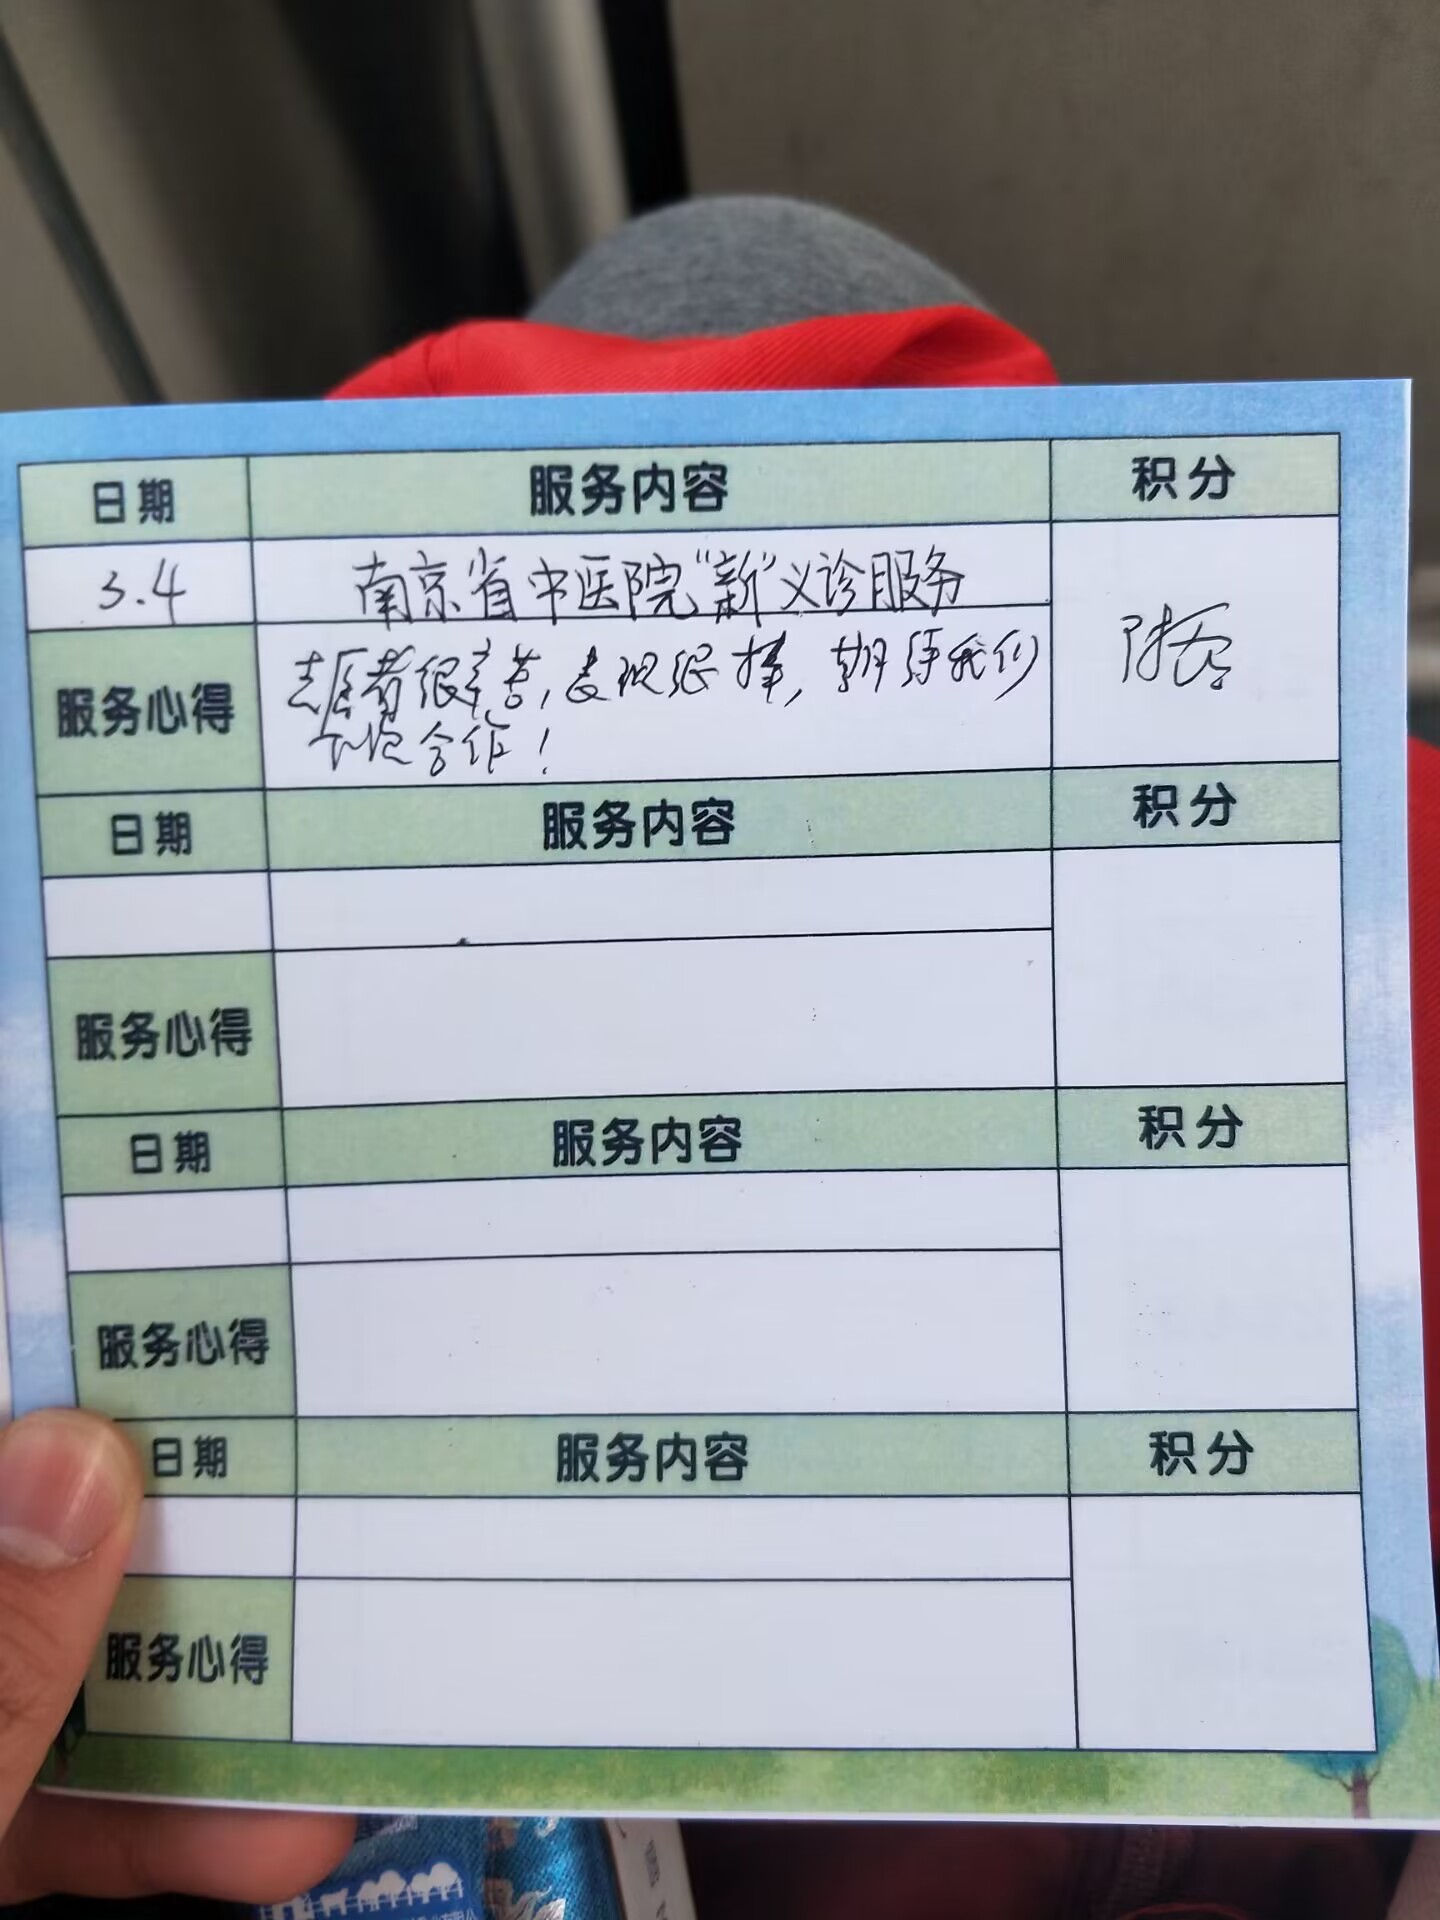 日期 服务内容 积分
3.4 南京省中医院“新”义诊服务
服务心得 志愿者很辛苦，表现很棒，期待我们
下次合作！
日期 服务内容 积分
服务心得
日期 服务内容 积分
服务心得
日期 服务内容 积分
服务心得